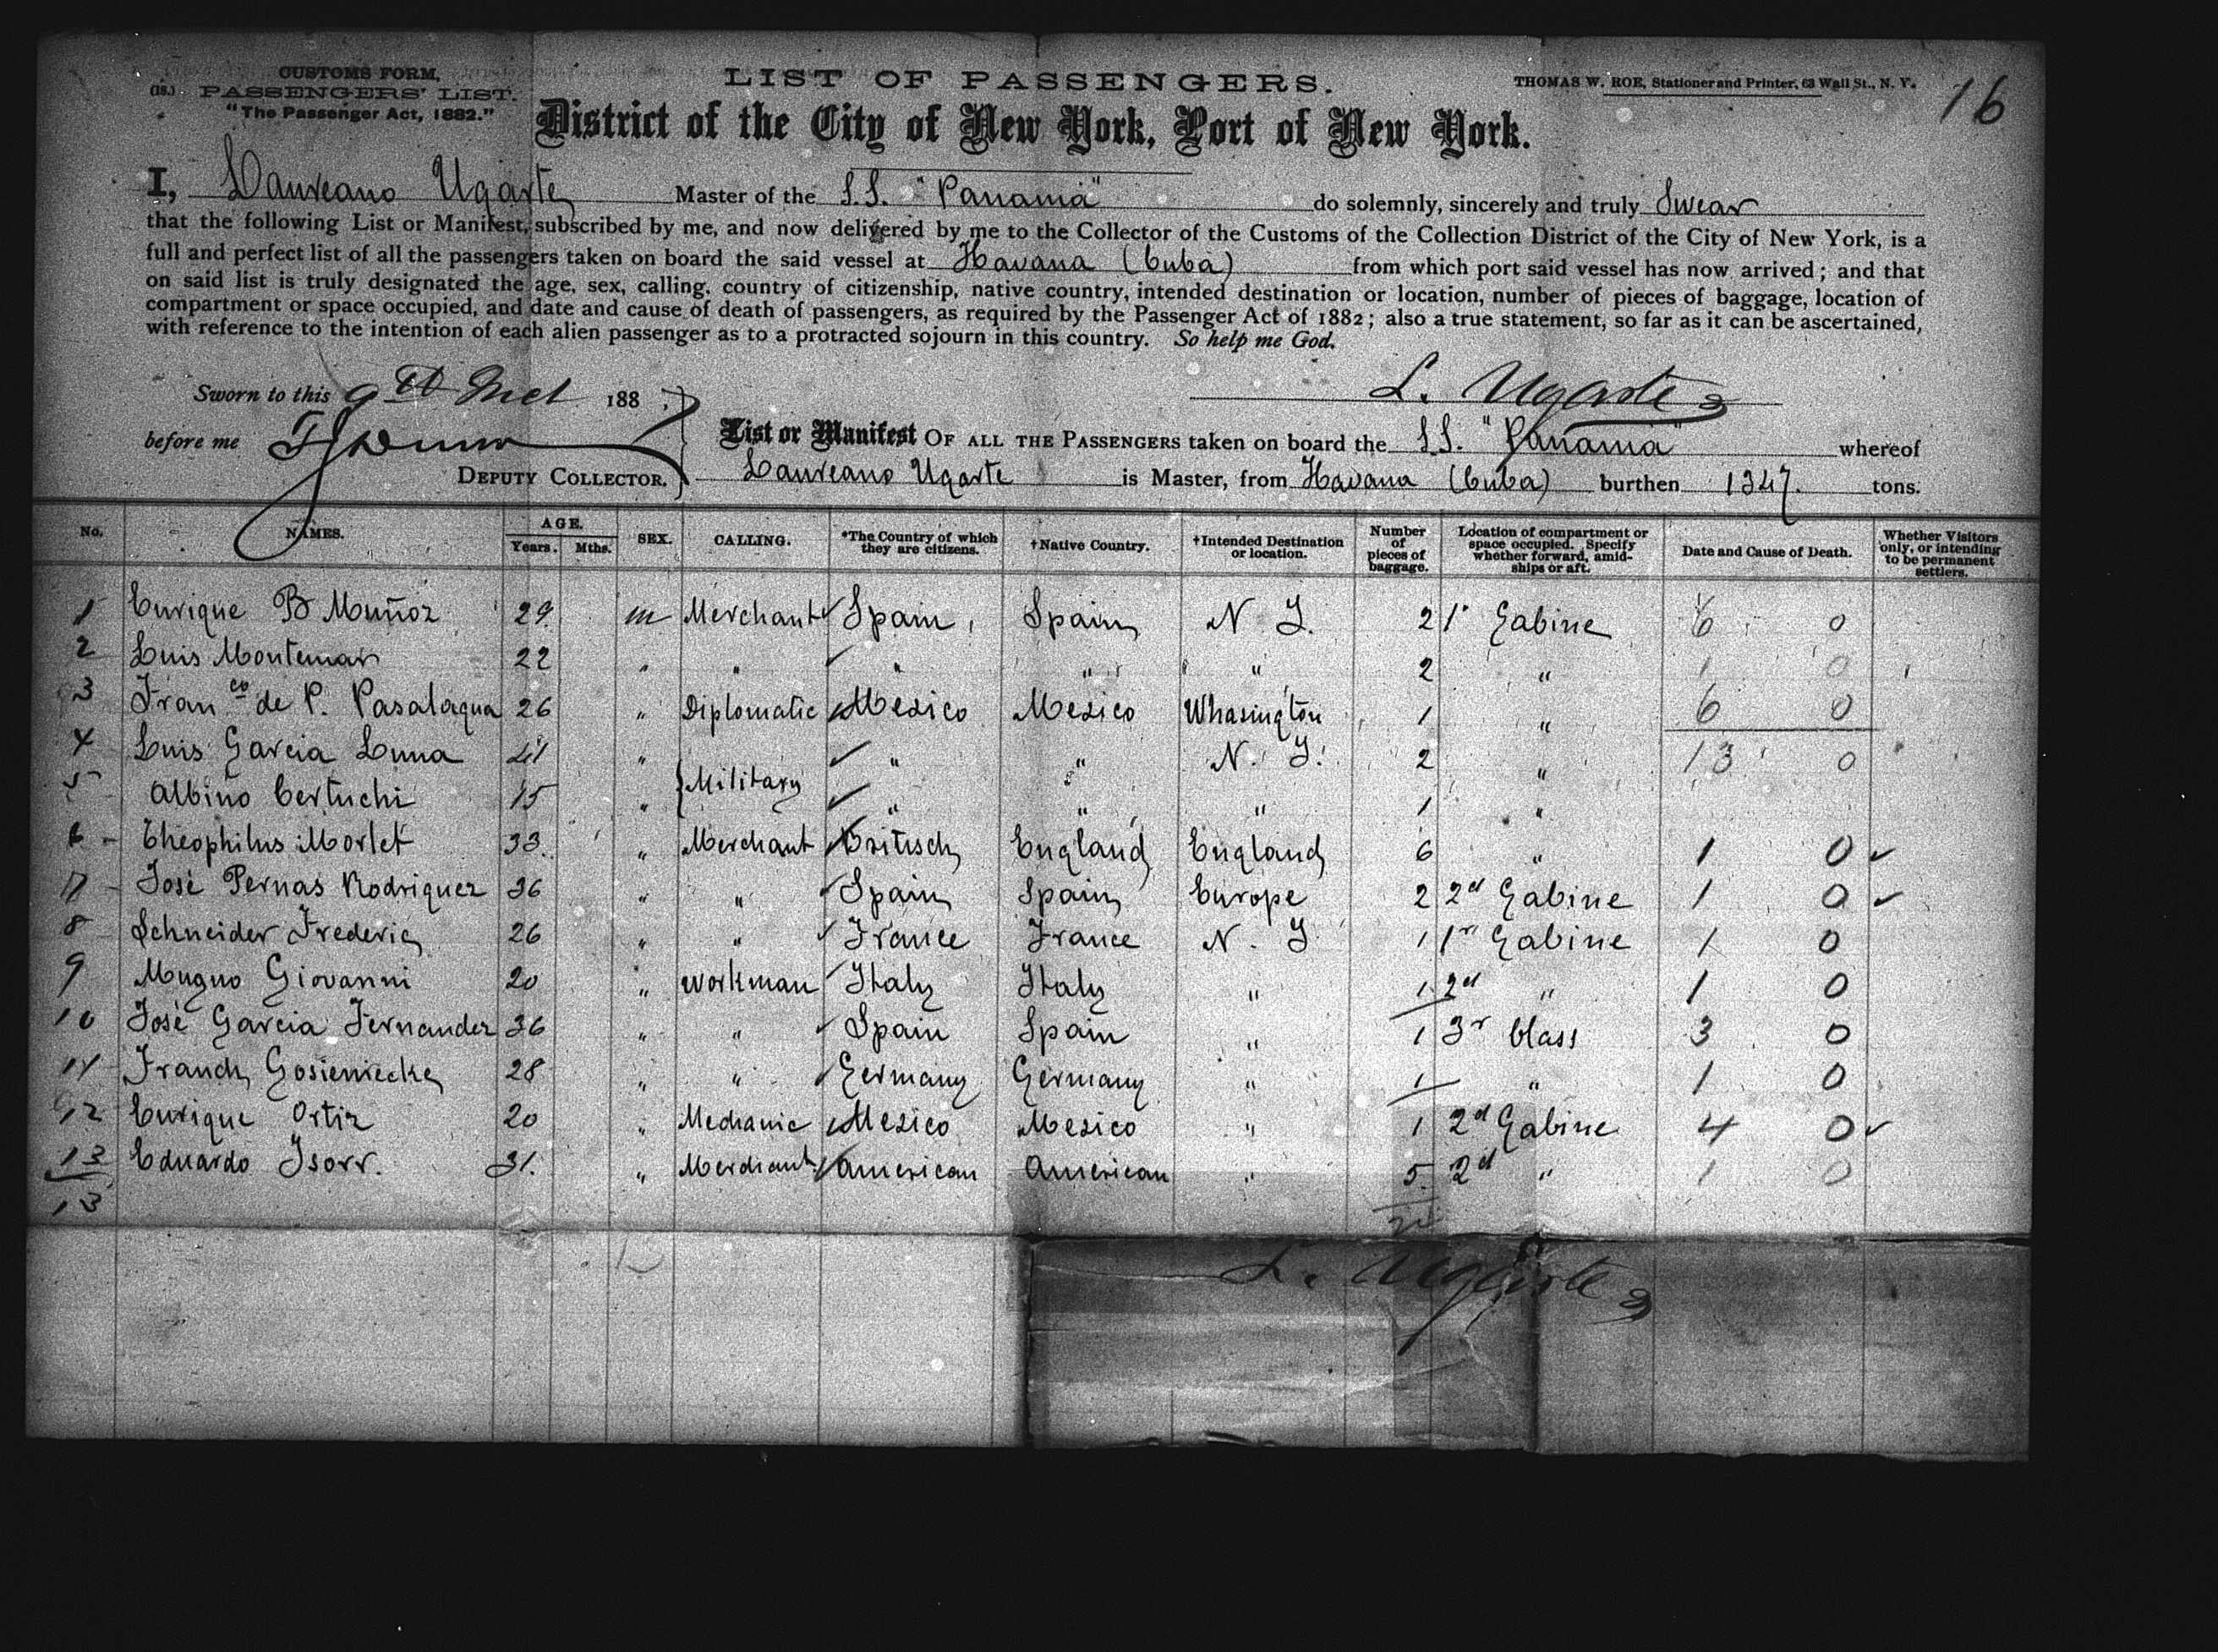 CUSTOMS FORM,
(18.) PASSENGERS' LIST.
"The Passenger Act, 1882."
LIST OF PASSENGERS.
THOMAS W. ROE, Stationer and Printer, 63 Wall St., N. Y.
16
District of the City of New York, Port of New York.
I, Laureano Ugarte Master of the S.S. "Panamá" do solemnly, sincerely and truly Swear
that the following List or Manifest, subscribed by me, and now delivered by me to the Collector of the Customs of the Collection District of the City of New York, is a
full and perfect list of all the passengers taken on board the said vessel at Havana (Cuba) from which port said vessel has now arrived; and that
on said list is truly designated the age, sex, calling, country of citizenship, native country, intended destination or location, number of pieces of baggage, location of
compartment or space occupied, and date and cause of death of passengers, as required by the Passenger Act of 1882; also a true statement, so far as it can be ascertained,
with reference to the intention of each alien passenger as to a protracted sojourn in this country. So help me God.
Sworn to this 9th 188
L. Ugarte
before me
DEPUTY COLLECTOR.
List or Manifest OF ALL THE PASSENGERS taken on board the S.S. "Panamá" whereof
Laureano Ugarte is Master, from Havana (Cuba) burthen 1347. tons.
No. NAMES. AGE. Years. Mths. SEX. CALLING. *The Country of which they are citizens. †Native Country. †Intended Destination or location. Number of pieces of baggage. Location of compartment or space occupied. Specify whether forward, amidships or aft. Date and Cause of Death. Whether Visitors only, or intending to be permanent settlers.
1 Enrique B Muñoz 29 m Merchant Spain Spain N Y. 2 1r Cabine 6 0
2 Luis Montemar 22 " " " " " 2 " 1 0
3 Franco de P. Pasalagua 26 " Diplomatic Mexico Mexico Whasington 1 " 6 0
4 Luis Garcia Luna 41 " Military " " N. Y. 2 " 13 0
5 Albino Certuchi 15 " " " " 1 "
6 Theophilus Morlet 33 " Merchant Britisch England England 6 " 1 0
7 José Pernas Rodriguez 36 " " Spain Spain Europe 2 2d Cabine 1 0
8 Schneider Frederic 26 " " France France N. Y 1 1r Cabine 1 0
9 Mugno Giovanni 20 " Workman Italy Italy " 1 2d " 1 0
10 José Garcia Fernandez 36 " " Spain Spain " 1 3r Class 3 0
11 Franch Gosieniecke 28 " " Germany Germany " 1 " 1 0
12 Enrique Ortiz 20 " Mechanic Mexico Mexico " 1 2d Cabine 4 0
13 Eduardo Isorr. 31. " Merchant American American " 5 2d " 1 0
13
L. Ugarte